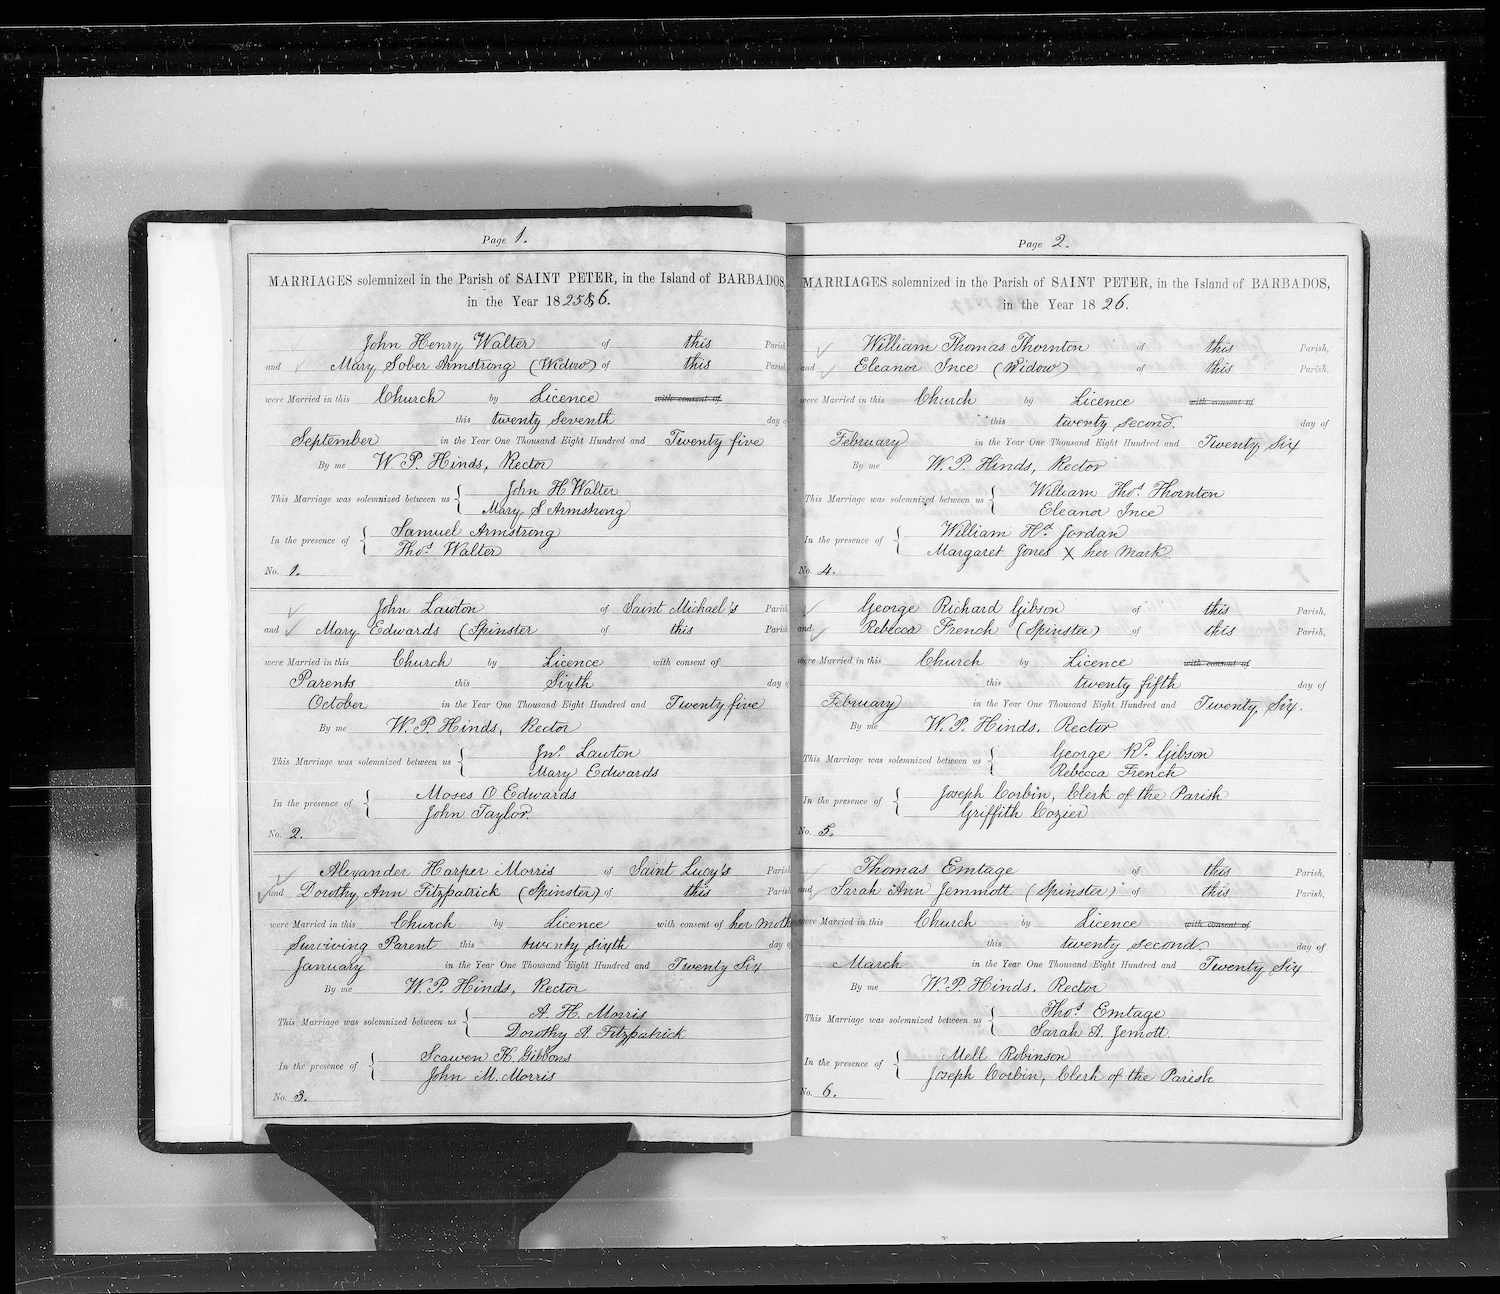 Page 1.
MARRIAGES solemnized in the Parish of SAINT PETER, in the Island of BARBADOS,
in the Year 1825&6.
John Henry Walter of this Parish
and Mary Sober Armstrong (Widow) of this Parish
were Married in this Church by Licence with consent of
this twenty seventh day of
September in the Year One Thousand Eight Hundred and Twenty five
By me W. P. Hinds, Rector
This Marriage was solemnized between us { John H Walter
Mary S Armstrong
In the presence of { Samuel Armstrong
Thos. Walter
No. 1.
John Lawton of Saint Michael's Parish
and Mary Edwards (Spinster of this Parish
were Married in this Church by Licence with consent of
Parents this Sixth day of
October in the Year One Thousand Eight Hundred and Twenty five
By me W. P. Hinds, Rector
This Marriage was solemnized between us { Jno. Lawton
Mary Edwards
In the presence of { Moses O Edwards
John Taylor.
No. 2.
Alexander Harper Morris of Saint Lucy's Parish
and Dorothy Ann Fitzpatrick (Spinster) of this Parish
were Married in this Church by Licence with consent of her Moth
Surviving Parent this twenty sixth day of
January in the Year One Thousand Eight Hundred and Twenty Six
By me W. P. Hinds, Rector
This Marriage was solemnized between us { A. H. Morris
Dorothy A. Fitzpatrick
In the presence of { Scawen K. Gibbons
John M. Morris
No. 3.
Page 2.
MARRIAGES solemnized in the Parish of SAINT PETER, in the Island of BARBADOS,
in the Year 1826.
William Thomas Thornton of this Parish,
and Eleanor Ince (Widow) of this Parish,
were Married in this Church by Licence with consent of
this twenty second. day of
February in the Year One Thousand Eight Hundred and Twenty Six
By me W. P. Hinds, Rector
This Marriage was solemnized between us { William Thos. Thornton
Eleanor Ince
In the presence of { William Hd. Jordan
Margaret Jones X her mark.
No. 4.
George Richard Gibson of this Parish,
and Rebecca French (Spinster) of this Parish,
were Married in this Church by Licence with consent of
this twenty fifth day of
February in the Year One Thousand Eight Hundred and Twenty, Six.
By me W. P. Hinds. Rector
This Marriage was solemnized between us { George Rd. Gibson
Rebecca French
In the presence of { Joseph Corbin, Clerk of the Parish
Griffith Cozier
No. 5.
Thomas Emtage of this Parish,
and Sarah Ann Jemmott (Spinster) of this Parish,
were Married in this Church by Licence with consent of
this twenty second. day of
March in the Year One Thousand Eight Hundred and Twenty Six
By me W. P. Hinds. Rector
This Marriage was solemnized between us { Thos. Emtage
Sarah A. Jemott.
In the presence of { Mell Robinson
Joseph Corbin, Clerk of the Parish
No. 6.